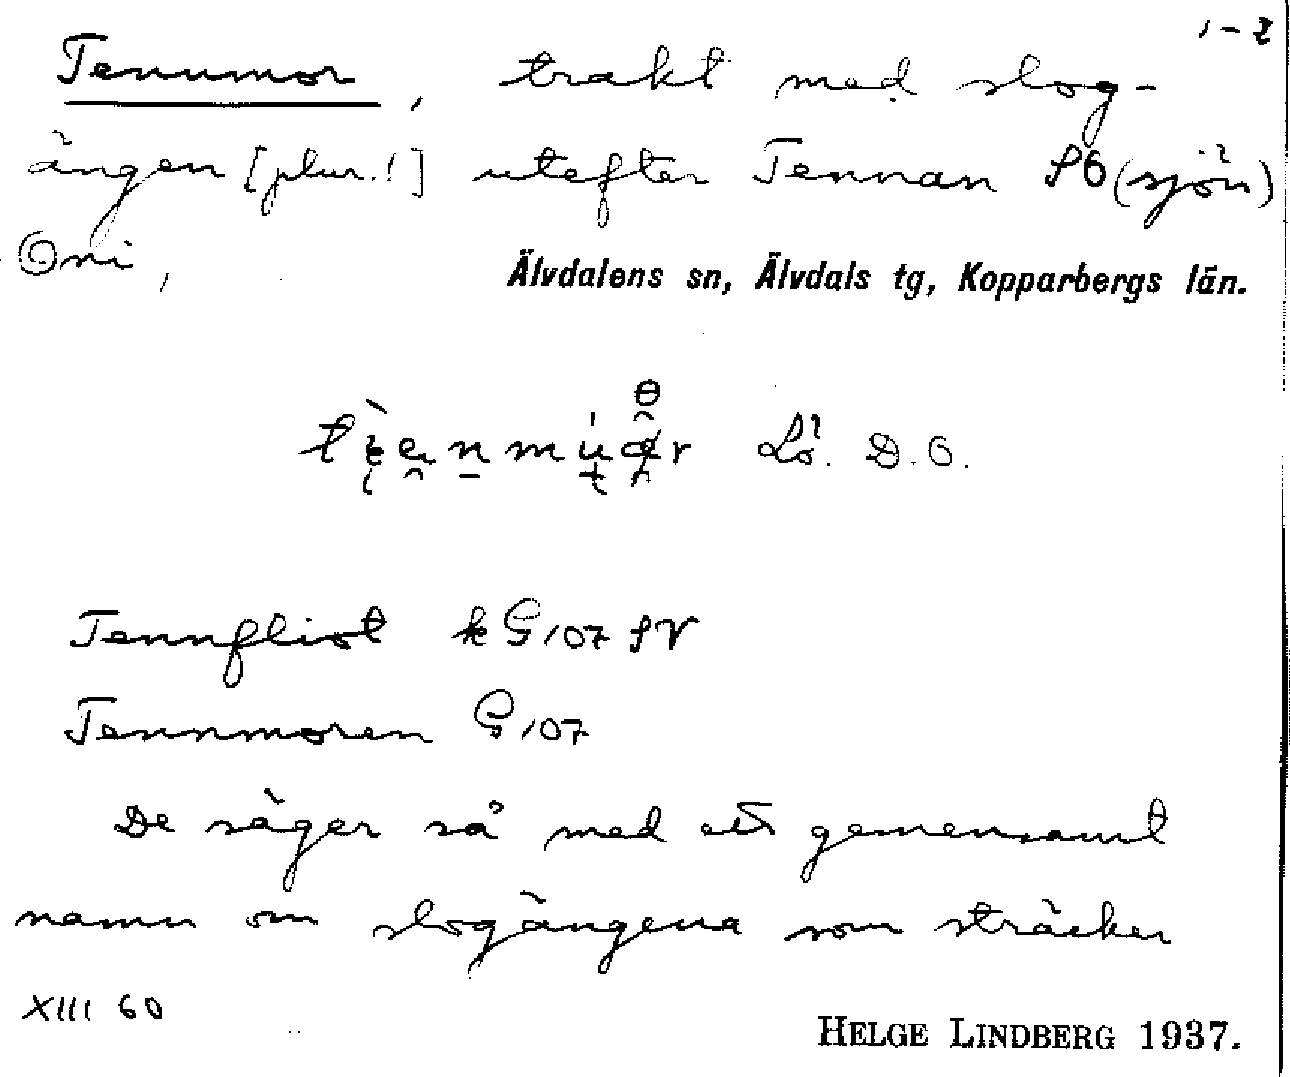 1-2
Tennmor, trakt med slog-
ängen [plur.!] utefter Tennan S6 (sjön)
Älvdalens sn, Älvdals tg, Kopparbergs län.
D.O.
Tennflist k G107 SV
Tennmoren G107
De säger så med ett gemensamt
namn om slogängena som sträcker
XIII 60
HELGE LINDBERG 1937.